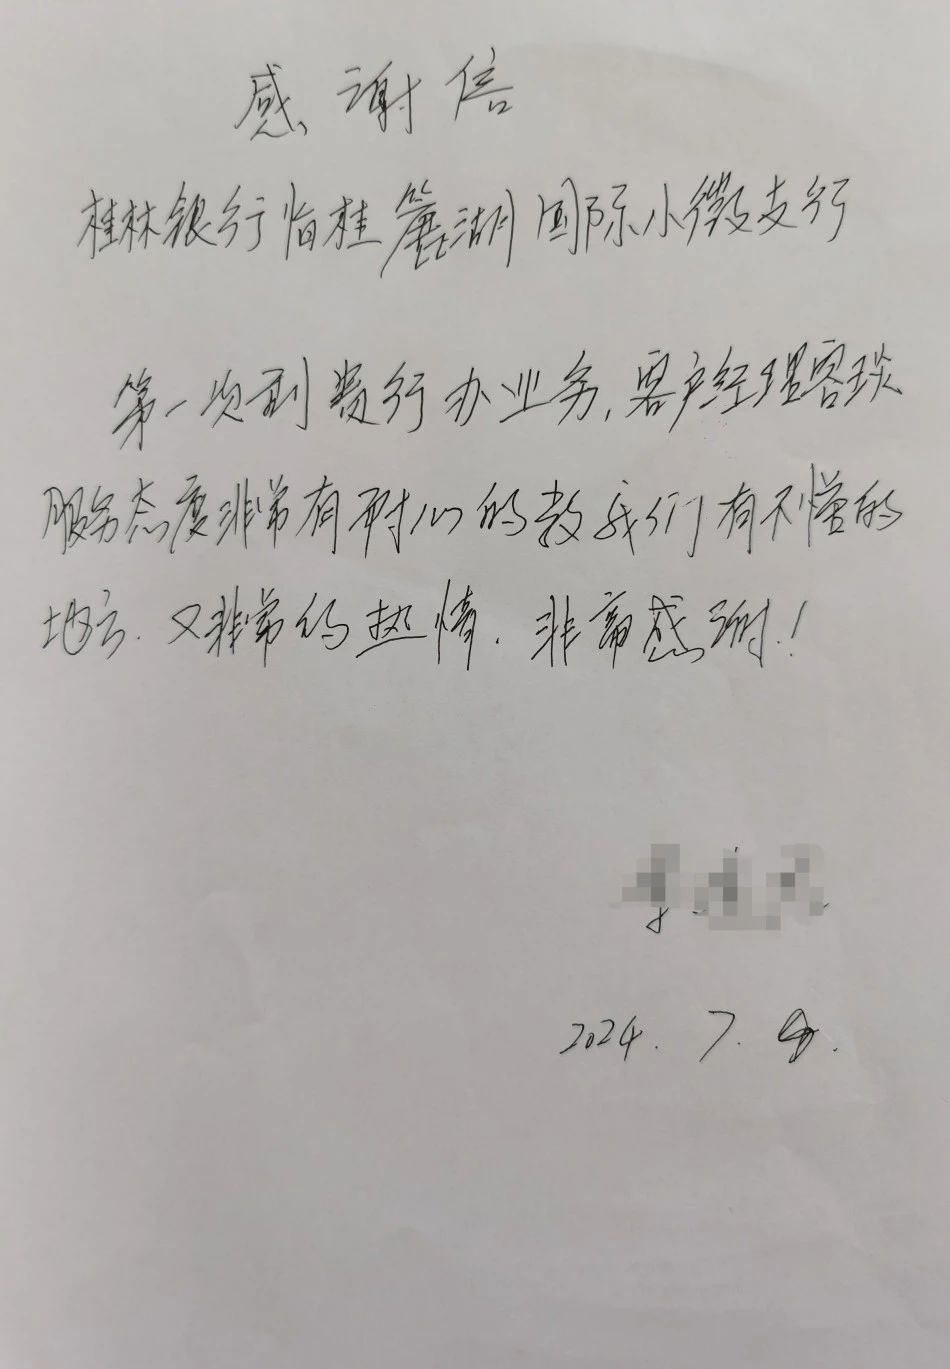 感谢信
桂林银行临桂麓湖国际小微支行
第一次到贵行办业务,客户经理容琰
服务态度非常有耐心的教我们有不懂的
地方.又非常的热情.非常感谢!
2024.7.